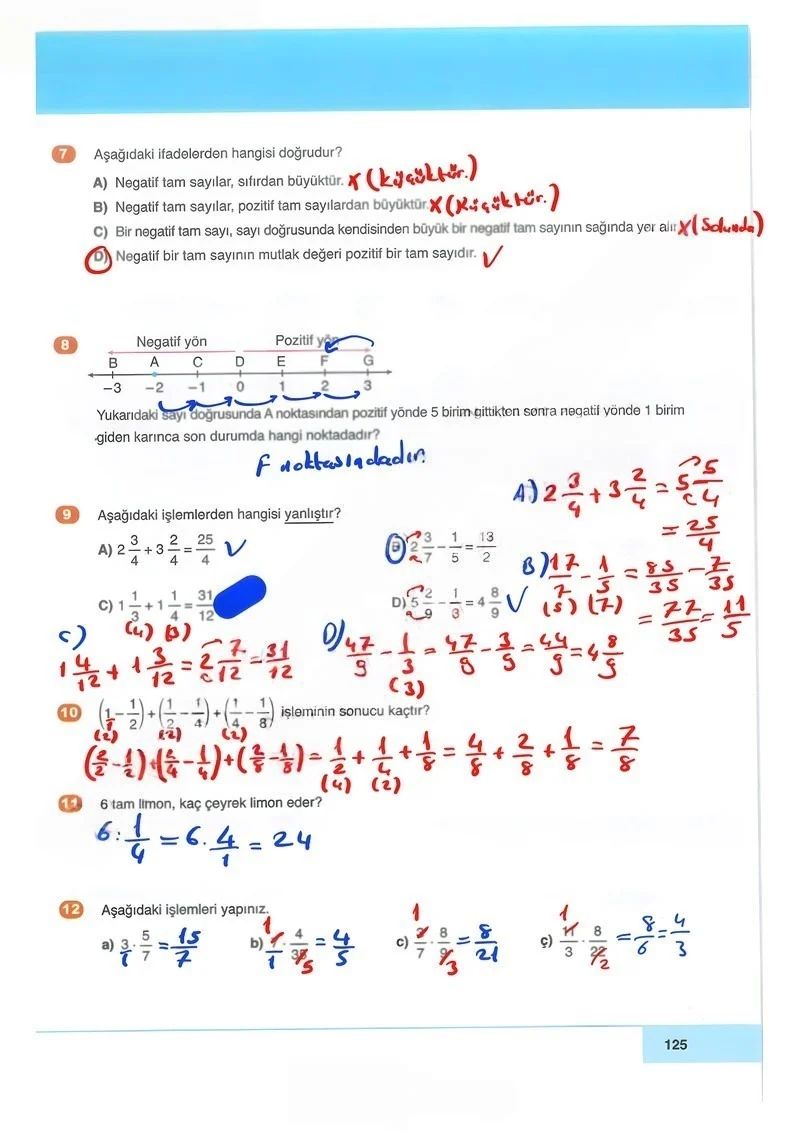 7 Aşağıdaki ifadelerden hangisi doğrudur?
A) Negatif tam sayılar, sıfırdan büyüktür. X (küçüktür.)
B) Negatif tam sayılar, pozitif tam sayılardan büyüktür. X (Küçüktür.)
C) Bir negatif tam sayı, sayı doğrusunda kendisinden büyük bir negatif tam sayının sağında yer alır X (Solunda)
D) Negatif bir tam sayının mutlak değeri pozitif bir tam sayıdır. ✓
8 Negatif yön Pozitif yön
B A C D E F G
−3 −2 −1 0 1 2 3
Yukarıdaki sayı doğrusunda A noktasından pozitif yönde 5 birim gittikten sonra negatif yönde 1 birim
giden karınca son durumda hangi noktadadır?
F noktasındadır.
9 Aşağıdaki işlemlerden hangisi yanlıştır?
A) 2 3/4 + 3 2/4 = 25/4 ✓
B) 2 3/7 − 1/5 = 13/2
C) 1 1/3 + 1 1/4 = 31/12
(4) (3)
D) 5 2/9 − 1/3 = 4 8/9 ✓
A) 2 3/4 + 3 2/4 = 5 5/4
= 25/4
B) 17/7 − 1/5 = 85/35 − 7/35
(5) (7)
= 77/35 = 11/5
C)
1 4/12 + 1 3/12 = 2 7/12 = 31/12
D) 47/9 − 1/3 = 47/9 − 3/9 = 44/9 = 4 8/9
(3)
10 (1/1 − 1/2) + (1/2 − 1/4) + (1/4 − 1/8) işleminin sonucu kaçtır?
(2) (2) (2)
(2/2 − 1/2) + (2/4 − 1/4) + (2/8 − 1/8) = 1/2 + 1/4 + 1/8 = 4/8 + 2/8 + 1/8 = 7/8
(4) (2)
11 6 tam limon, kaç çeyrek limon eder?
6 : 1/4 = 6 . 4/1 = 24
12 Aşağıdaki işlemleri yapınız.
a) 3/1 · 5/7 = 15/7
b) 7/1 · 4/35 = 4/5
1 5
c) 3/7 · 8/9 = 8/21
1 3
ç) 11/3 · 8/22 = 8/6 = 4/3
1 2
125